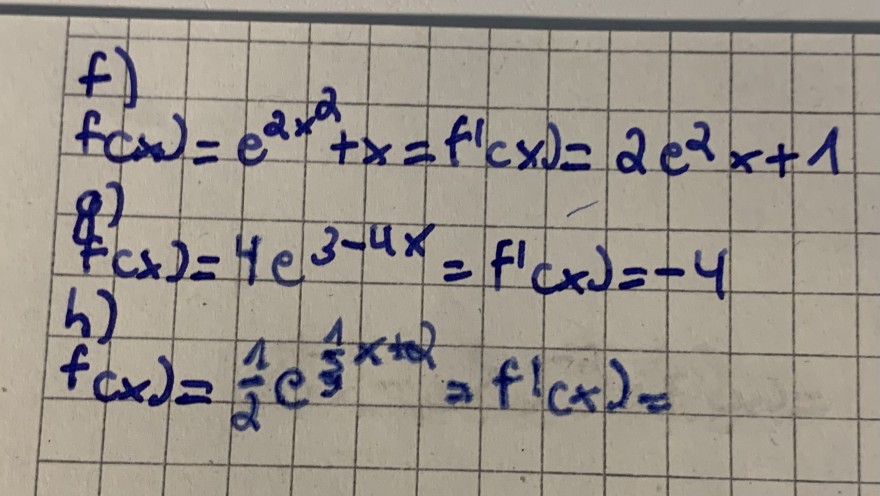 f)
f(x) = e^{2x^2} + x = f'(x) = 2e^2 x + 1
g)
f(x) = 4e^{3-4x} = f'(x) = -4
h)
f(x) = \frac{1}{2} e^{\frac{1}{3}x+2} = f'(x) =